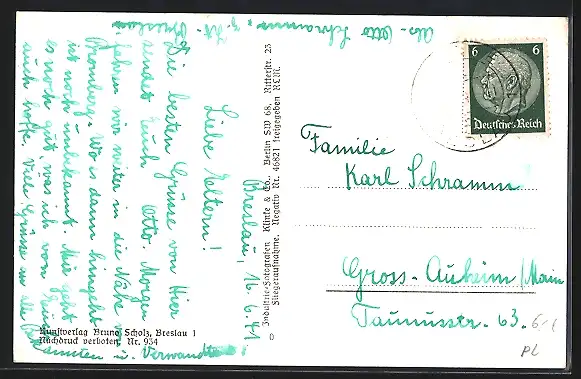 Abs. Otto Schramm, z. Zt. Breslau
Breslau, 16.6.41
Liebe Eltern!
Die besten Grüsse von Hier
sendet Euch Otto. Morgen
fahren wir weiter in die Nähe v.
Bromberg. Wo es dann hingeht
ist noch unbekannt. Mir geht
es noch gut, was ich von Euch
auch hoffe. Viel Grüsse an die
Bekannten u. Verwandten!
Kunstverlag Bruno Scholz, Breslau 1
Nachdruck verboten, Nr. 934
Industrie-Fotografen Klinke & Co. Berlin SW 68, Ritterstr. 23
Fliegeraufnahme. Negativ Nr. 46821 freigegeben RLM.
0
6 6
Deutsches Reich
Familie
Karl Schramm
Gross-Auheim/Main
Taunusstr. 63.
6-1
PL